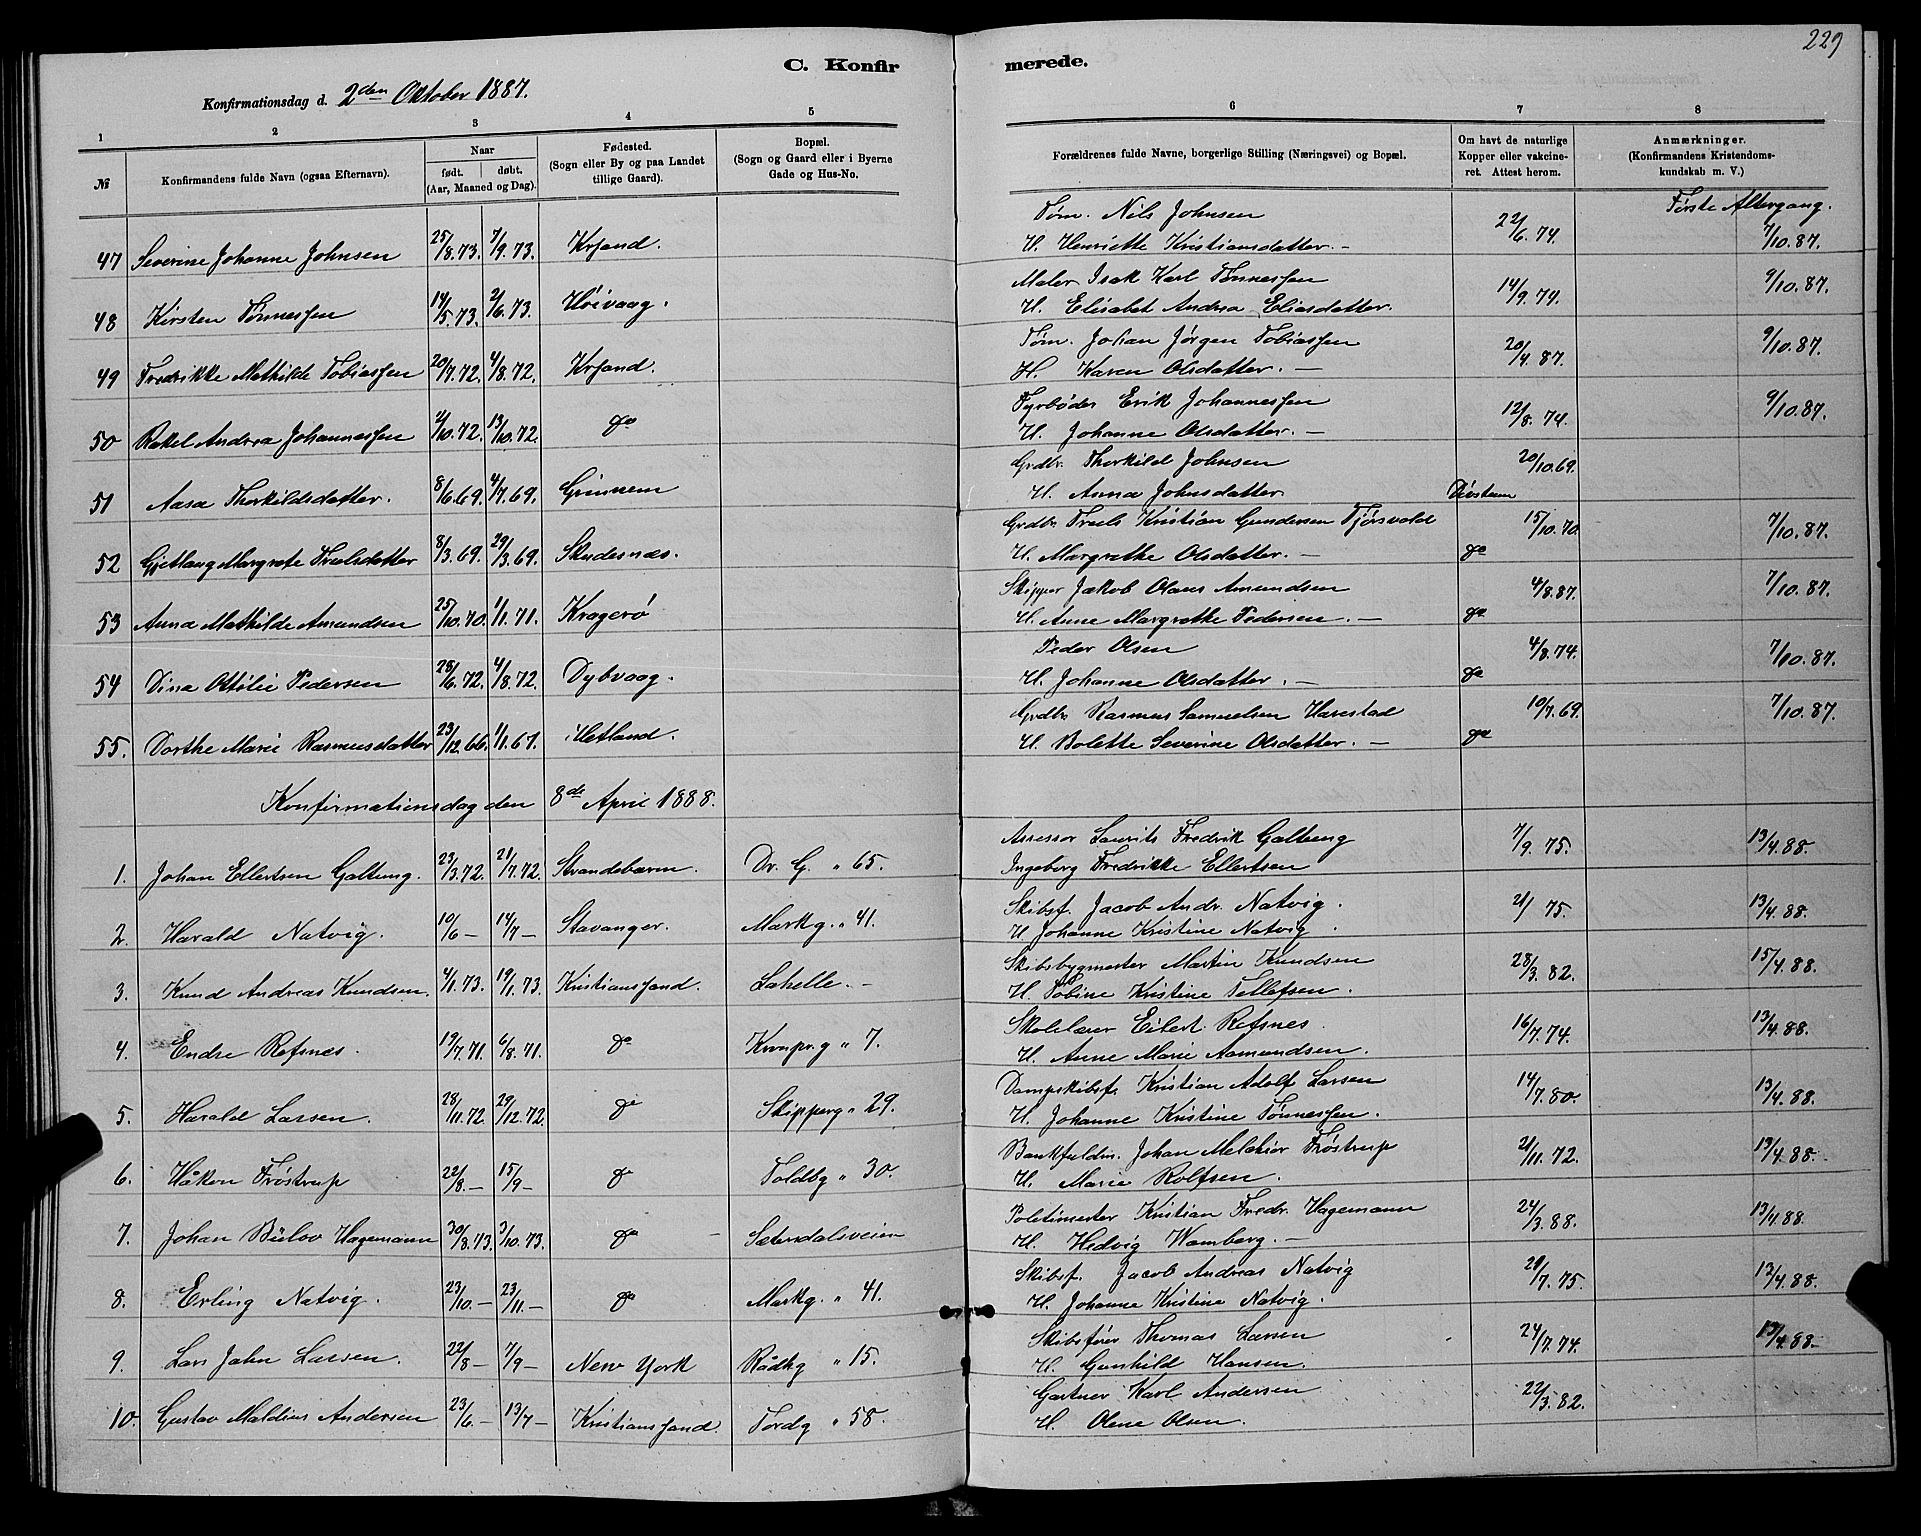 229
C. Konfirmerede.
Konfirmationsdag d. 2den Oktober 1887.
1 2 3 4 5 6 7 8
№ Konfirmandens fulde Navn (ogsaa Efternavn). Naar født. døbt. (Aar, Maaned og Dag). Fødested. (Sogn eller By og paa Landet tillige Gaard). Bopæl. (Sogn og Gaard eller i Byerne Gade og Hus-No. Forældrenes fulde Navne, borgerlige Stilling (Næringsvei) og Bopæl. Om havt de naturlige Kopper eller vakcineret. Attest herom. Anmærkninger. (Konfirmandens Kristendomskundskab m. V.)
Første Altergang.
47 Severine Johanne Johnsen 25/8.73. 7/9.73. Krsand. Tøm. Nils Johnsen 22/6.74. 7/10.87.
H. Henriette Kristiansdatter. –
48 Kirsten Tønnessen 14/5.73. 2/6.73. Høivaag. Maler Isak Karl Tønnessen 14/9.74. 9/10.87.
H. Elisabet Andrea Eliasdatter.
49 Fredrikke Mathilde Tobiassen 20/7.72. 4/8.72. Krsand. Tøm. Johan Jørgen Tobiassen 20/4 87. 9/10.87.
H. Karen Olsdatter. –
50 Rakel Andrea Johannessen 2/10.72. 13/10.72. do Fyrbøder Erik Johannessen 12/8.74. 9/10.87.
H. Johanne Olsdatter. –
51 Aasa Thorkildsdatter. 8/6.69. 4/7.69. Grinnem Grdbr. Thorkild Johnsen 20/10.69.
H. Anna Johnsdatter
52 Gjetlaug Margrete Troelsdatter 8/3.69. 29/3.69. Skudesnæs. Grdbr. Troels Kristian Gundersen Tjørsvold 15/10.70. 7/10.87.
H. Margrethe Olsdatter. – do
53 Anna Mathilde Amundsen 25/10.70. 1/1.71. Kragerø Skipper Jakob Olaus Amundsen 4/8.87. 7/10.87.
H. Anne Margrethe Pedersen. – do
54 Dina Ottilie Pedersen 28/6.72. 4/8.72. Dybvaag. Peder Olsen 4/8.74. 7/10.87.
H. Johanne Olsdatter. – do
55. Dorthe Marie Rasmusdatter 23/12.66. 1/1.67. Hetland. Grdbr Rasmus Samuelsen Harestad 10/7.69. 7/10.87.
H. Bolette Severine Olsdatter. – do
Konfirmationsdag den 8de April 1888.
1. Johan Ellertsen Galtung. 23/3.72. 21/7.72. Strandebarm. Dr. G. " 65. Assessor Laurits Fredrik Galtung 7/9.75. 13/4.88.
Ingeborg Fredrikke Ellertsen
2. Harald Natvig. 10/6 – 14/7 – Stavanger. Markg. " 41. Skibsf. Jacob Andr. Natvig. 21/ 75. 13/4.88.
H. Johanne Kristine Natvig.
3. Knud Andreas Knudsen. 4/1.73. 19/1.73. Kristianssand. Lahelle. – Skibsbygmester Martin Knudsen 28/3.82. 15/4.88.
H. Tobine Kristine Tellefsen.
4. Endre Refsnes. 19/7.71. 6/8.71. do Kronpr.g " 7. Skolelærer Eilert Refsnes. 16/7.74. 13/4.88.
H. Anne Marie Aamundsen.
5. Harald Larsen. 28/11.72. 29/12.72. do Skipperg " 29. Dampskibsf. Kristian Adolf Larsen 14/7.80. 13/4.88.
H. Johanne Kristine Tønnessen.
6. Håkon Frøstrup 22/8. – 15/9 – do Toldbg " 30. Bankfuldm. Johan Melchior Frøstrup 21/11.72. 13/4.88.
H. Marie Rolfsen.
7. Johan Bülow Hagemann 30/8.73. 3/10.73. do – Sætersdalsveien Politimester Kristian Fredr. Hagemann 24/3.88. 13/4.88.
H. Hedvig Wamberg. –
8. Erling Natvig. 23/10. – 23/11. – do Markg. " 41. Skibsf. Jacob Andreas Natvig 21/7.75. 13/4.88.
H. Johanne Kristine Natvig.
9. Lars John Larsen. 22/8 – 7/9 – New York Rådhg " 15. Skibsfører Thomas Larsen 24/7.74. 13/4.88.
H. Gunhild Hansen.
10. Gustav Maldius Andersen 23/6 – 13/7 – Kristianssand. Tordg " 58. Gartner Karl Andersen 22/3.82.
H. Olene Olsen.